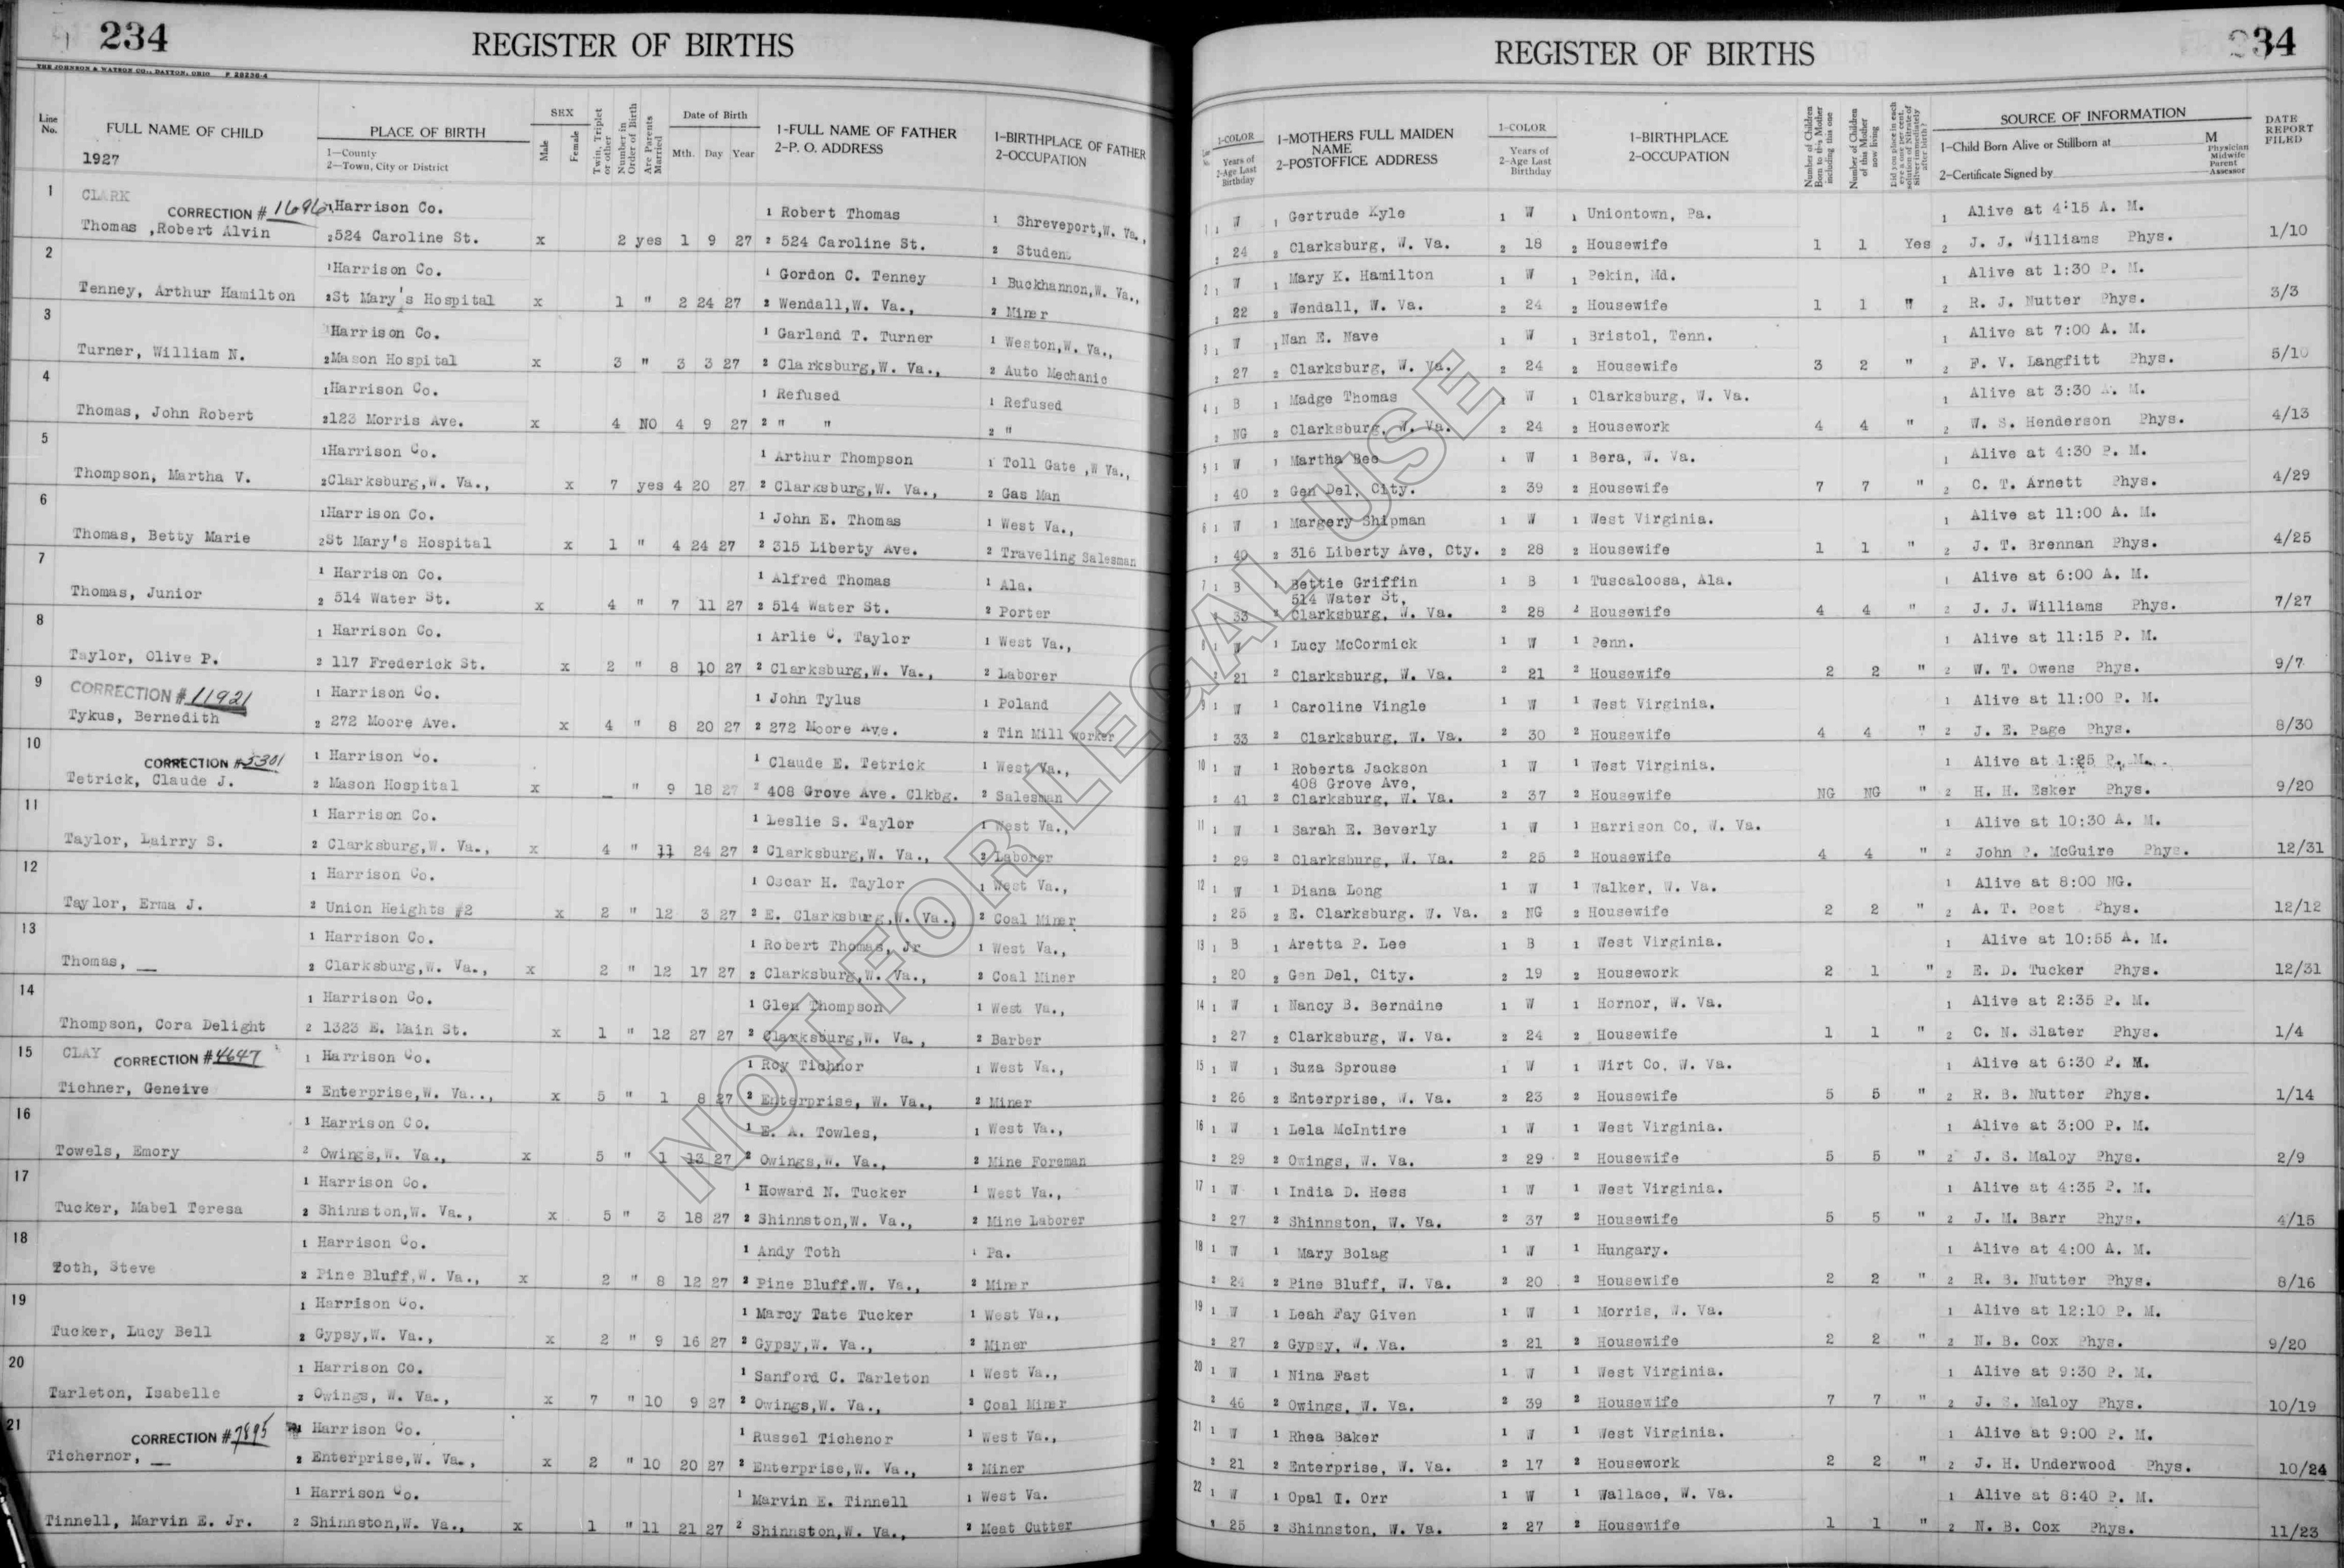 234
REGISTER OF BIRTHS
THE JOHNSON & WATSON CO., DAYTON, OHIO P 28236-4
Line No.
FULL NAME OF CHILD
1927
PLACE OF BIRTH
1—County
2—Town, City or District
SEX
Male
Female
Twin, Triplet or other
Number in Order of Birth
Are Parents Married
Date of Birth
Mth. Day Year
1-FULL NAME OF FATHER
2-P. O. ADDRESS
1-BIRTHPLACE OF FATHER
2-OCCUPATION
1 CLARK
CORRECTION # 11696 1 Harrison Co. 1 Robert Thomas 1 Shreveport,W. Va.,
Thomas ,Robert Alvin 2 524 Caroline St. x 2 yes 1 9 27 2 524 Caroline St. 2 Student
2 1 Harrison Co. 1 Gordon C. Tenney 1 Buckhannon,W. Va.,
Tenney, Arthur Hamilton 2 St Mary's Hospital x 1 " 2 24 27 2 Wendall,W. Va., 2 Miner
3 1 Harrison Co. 1 Garland T. Turner 1 Weston,W. Va.,
Turner, William N. 2 Mason Hospital x 3 " 3 3 27 2 Clarksburg,W. Va., 2 Auto Mechanic
4 1 Harrison Co. 1 Refused 1 Refused
Thomas, John Robert 2 123 Morris Ave. x 4 NO 4 9 27 2 " " 2 "
5 1 Harrison Co. 1 Arthur Thompson 1 Toll Gate ,W Va.,
Thompson, Martha V. 2 Clarksburg,W. Va., x 7 yes 4 20 27 2 Clarksburg,W. Va., 2 Gas Man
6 1 Harrison Co. 1 John E. Thomas 1 West Va.,
Thomas, Betty Marie 2 St Mary's Hospital x 1 " 4 24 27 2 315 Liberty Ave. 2 Traveling Salesman
7 1 Harrison Co. 1 Alfred Thomas 1 Ala.
Thomas, Junior 2 514 Water St. x 4 " 7 11 27 2 514 Water St. 2 Porter
8 1 Harrison Co. 1 Arlie C. Taylor 1 West Va.,
Taylor, Olive P. 2 117 Frederick St. x 2 " 8 10 27 2 Clarksburg,W. Va., 2 Laborer
9 CORRECTION # 11921 1 Harrison Co. 1 John Tylus 1 Poland
Tykus, Bernedith 2 272 Moore Ave. x 4 " 8 20 27 2 272 Moore Ave. 2 Tin Mill worker
10 CORRECTION # 5301 1 Harrison Co. 1 Claude E. Tetrick 1 West Va.,
Tetrick, Claude J. 2 Mason Hospital x _ " 9 18 27 2 408 Grove Ave. Clkbg. 2 Salesman
11 1 Harrison Co. 1 Leslie S. Taylor 1 West Va.,
Taylor, Lairry S. 2 Clarksburg,W. Va., x 4 " 11 24 27 2 Clarksburg,W. Va., 2 Laborer
12 1 Harrison Co. 1 Oscar H. Taylor 1 West Va.,
Taylor, Erma J. 2 Union Heights #2 x 2 " 12 3 27 2 E. Clarksburg,W. Va., 2 Coal Miner
13 1 Harrison Co. 1 Robert Thomas, Jr 1 West Va.,
Thomas, __ 2 Clarksburg,W. Va., x 2 " 12 17 27 2 Clarksburg,W. Va., 2 Coal Miner
14 1 Harrison Co. 1 Glen Thompson 1 West Va.,
Thompson, Cora Delight 2 1323 E. Main St. x 1 " 12 27 27 2 Clarksburg,W. Va., 2 Barber
15 CLAY CORRECTION # 4647 1 Harrison Co. 1 Roy Tichnor 1 West Va.,
Tichner, Geneive 2 Enterprise,W. Va.., x 5 " 1 8 27 2 Enterprise, W. Va., 2 Miner
16 1 Harrison Co. 1 E. A. Towles, 1 West Va.,
Towels, Emory 2 Owings,W. Va., x 5 " 1 13 27 2 Owings,W. Va., 2 Mine Foreman
17 1 Harrison Co. 1 Howard N. Tucker 1 West Va.,
Tucker, Mabel Teresa 2 Shinnston,W. Va., x 5 " 3 18 27 2 Shinnston,W. Va., 2 Mine Laborer
18 1 Harrison Co. 1 Andy Toth 1 Pa.
Toth, Steve 2 Pine Bluff,W. Va., x 2 " 8 12 27 2 Pine Bluff.W. Va., 2 Miner
19 1 Harrison Co. 1 Marcy Tate Tucker 1 West Va.,
Tucker, Lucy Bell 2 Gypsy,W. Va., x 2 " 9 16 27 2 Gypsy,W. Va., 2 Miner
20 1 Harrison Co. 1 Sanford C. Tarleton 1 West Va.,
Tarleton, Isabelle 2 Owings, W. Va., x 7 " 10 9 27 2 Owings,W. Va., 2 Coal Miner
21 CORRECTION # 7895 Harrison Co. 1 Russel Tichenor 1 West Va.,
Tichernor, __ 2 Enterprise,W. Va., x 2 " 10 20 27 2 Enterprise,W. Va., 2 Miner
1 Harrison Co. 1 Marvin E. Tinnell 1 West Va.
Tinnell, Marvin E. Jr. 2 Shinnston,W. Va., x 1 " 11 21 27 2 Shinnston,W. Va., 2 Meat Cutter
234
REGISTER OF BIRTHS
1-COLOR
Years of
2-Age Last
Birthday
1-MOTHERS FULL MAIDEN NAME
2-POSTOFFICE ADDRESS
1-COLOR
Years of
2-Age Last
Birthday
1-BIRTHPLACE
2-OCCUPATION
Number of Children Born to this Mother including this one
Number of Children of this Mother now living
Did you place in each eye a one per cent. solution of Nitrate of Silver immediately after birth?
SOURCE OF INFORMATION
1-Child Born Alive or Stillborn at M
2-Certificate Signed by
Physician
Midwife
Parent
Assessor
DATE REPORT FILED
1 1 W 1 Gertrude Kyle 1 W 1 Uniontown, Pa. 1 Alive at 4:15 A. M.
2 24 2 Clarksburg, W. Va. 2 18 2 Housewife 1 1 Yes 2 J. J. Williams Phys. 1/10
2 1 W Mary K. Hamilton 1 W 1 Pekin, Md. 1 Alive at 1:30 P. M.
2 22 2 Wendall, W. Va. 2 24 2 Housewife 1 1 " 2 R. J. Nutter Phys. 3/3
3 1 W 1 Nan E. Nave 1 W 1 Bristol, Tenn. 1 Alive at 7:00 A. M.
2 27 2 Clarksburg, W. Va. 2 24 2 Housewife 3 2 " 2 F. V. Langfitt Phys. 5/10
4 1 B 1 Madge Thomas 1 W 1 Clarksburg, W. Va. 1 Alive at 3:30 A. M.
2 NG 2 Clarksburg, W. Va. 2 24 2 Housework 4 4 " 2 W. S. Henderson Phys. 4/13
5 1 W 1 Martha Bee 1 W 1 Bera, W. Va. 1 Alive at 4:30 P. M.
2 40 2 Gen Del, City. 2 39 2 Housewife 7 7 " 2 C. T. Arnett Phys. 4/29
6 1 W 1 Margery Shipman 1 W 1 West Virginia. 1 Alive at 11:00 A. M.
2 40 2 316 Liberty Ave, Cty. 2 28 2 Housewife 1 1 " 2 J. T. Brennan Phys. 4/25
7 1 B 1 Bettie Griffin 1 B 1 Tuscaloosa, Ala. 1 Alive at 6:00 A. M.
514 Water St,
33 2 Clarksburg, W. Va. 2 28 2 Housewife 4 4 " 2 J. J. Williams Phys. 7/27
W 1 Lucy McCormick 1 W 1 Penn. 1 Alive at 11:15 P. M.
2 21 2 Clarksburg, W. Va. 2 21 2 Housewife 2 2 " 2 W. T. Owens Phys. 9/7
9 1 W 1 Caroline Vingle 1 W 1 West Virginia. 1 Alive at 11:00 P. M.
2 33 2 Clarksburg, W. Va. 2 30 2 Housewife 4 4 " 2 J. E. Page Phys. 8/30
10 1 W 1 Roberta Jackson 1 W 1 West Virginia. 1 Alive at 1:25 P. M.
408 Grove Ave,
2 41 2 Clarksburg, W. Va. 2 37 2 Housewife NG NG " 2 H. H. Esker Phys. 9/20
11 1 W 1 Sarah E. Beverly 1 W 1 Harrison Co, W. Va. 1 Alive at 10:30 A. M.
2 29 2 Clarksburg, W. Va. 2 25 2 Housewife 4 4 " 2 John P. McGuire Phys. 12/31
12 1 W 1 Diana Long 1 W 1 Walker, W. Va. 1 Alive at 8:00 NG.
2 25 2 E. Clarksburg. W. Va. 2 NG 2 Housewife 2 2 " 2 A. T. Post Phys. 12/12
13 1 B 1 Aretta P. Lee 1 B 1 West Virginia. 1 Alive at 10:55 A. M.
2 20 2 Gen Del, City. 2 19 2 Housework 2 1 " 2 E. D. Tucker Phys. 12/31
14 1 W 1 Nancy B. Berndine 1 W 1 Hornor, W. Va. 1 Alive at 2:35 P. M.
2 27 2 Clarksburg, W. Va. 2 24 2 Housewife 1 1 " 2 C. N. Slater Phys. 1/4
15 1 W 1 Suza Sprouse 1 W 1 Wirt Co, W. Va. 1 Alive at 6:30 P. M.
2 26 2 Enterprise, W. Va. 2 23 2 Housewife 5 5 " 2 R. B. Nutter Phys. 1/14
16 1 W 1 Lela McIntire 1 W 1 West Virginia. 1 Alive at 3:00 P. M.
2 29 2 Owings, W. Va. 2 29 2 Housewife 5 5 " 2 J. S. Maloy Phys. 2/9
17 1 W 1 India D. Hess 1 W 1 West Virginia. 1 Alive at 4:35 P. M.
2 27 2 Shinnston, W. Va. 2 37 2 Housewife 5 5 " 2 J. M. Barr Phys. 4/15
18 1 W 1 Mary Bolag 1 W 1 Hungary. 1 Alive at 4:00 A. M.
2 24 2 Pine Bluff, W. Va. 2 20 2 Housewife 2 2 " 2 R. B. Nutter Phys. 8/16
19 1 W 1 Leah Fay Given 1 W 1 Morris, W. Va. 1 Alive at 12:10 P. M.
2 27 2 Gypsy, W. Va. 2 21 2 Housewife 2 2 " 2 N. B. Cox Phys. 9/20
20 1 W 1 Nina Fast 1 W 1 West Virginia. 1 Alive at 9:30 P. M.
2 46 2 Owings, W. Va. 2 39 2 Housewife 7 7 " 2 J. S. Maloy Phys. 10/19
21 1 W 1 Rhea Baker 1 W 1 West Virginia. 1 Alive at 9:00 P. M.
2 21 2 Enterprise, W. Va. 2 17 2 Housework 2 2 " 2 J. H. Underwood Phys. 10/24
22 1 W 1 Opal I. Orr 1 W 1 Wallace, W. Va. 1 Alive at 8:40 P. M.
2 25 2 Shinnston, W. Va. 2 27 2 Housewife 1 1 " 2 N. B. Cox Phys. 11/23
NOT FOR LEGAL USE